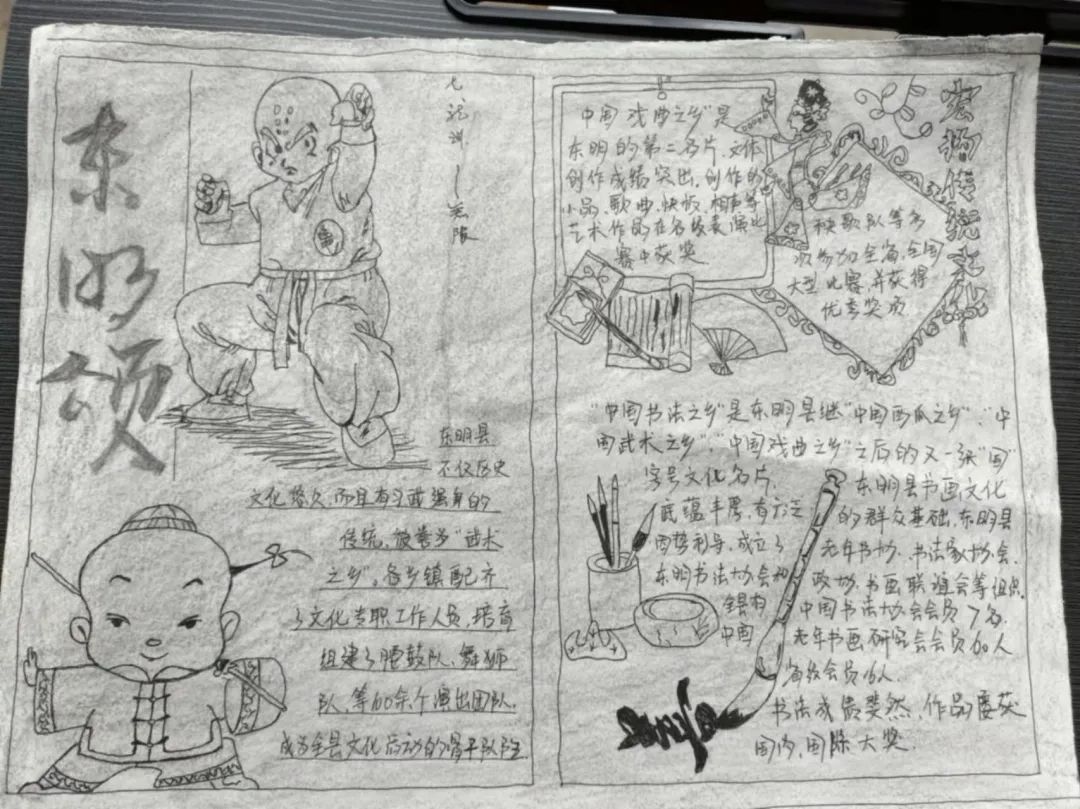 东明颂
东明县
不仅历史
文化悠久,而且有习武强身的
传统,被誉为“武术
之乡”。各乡镇配齐
了文化专职工作人员,培育
组建了腰鼓队、舞狮
队、等60余个演出团队,
成为全县文化活动的骨干队伍.
“中国戏曲之乡”是
东明的第二名片.文体
创作成绩突出,创作的
小品、歌曲、快板、相声等
艺术作品在各级表演比
赛中获奖
秧歌队等多
次参加全省、全国
大型比赛,并获得
优秀奖项
宏扬传统文化
“中国书法之乡”是东明县继“中国西瓜之乡”、“中
国武术之乡”、“中国戏曲之乡”之后的又一张“国”
字号文化名片.
东明县书画文化
底蕴丰厚,有广泛
的群众基础,东明县
因势利导,成立了
老年书协、书法家协会、
东明书法协会和
政协、书画联谊会等组织.
全县有
中国书法协会会员7名.
中国
老年书画研究会会员60人
省级会员16人
书法成绩斐然,作品屡获
国内,国际大奖.